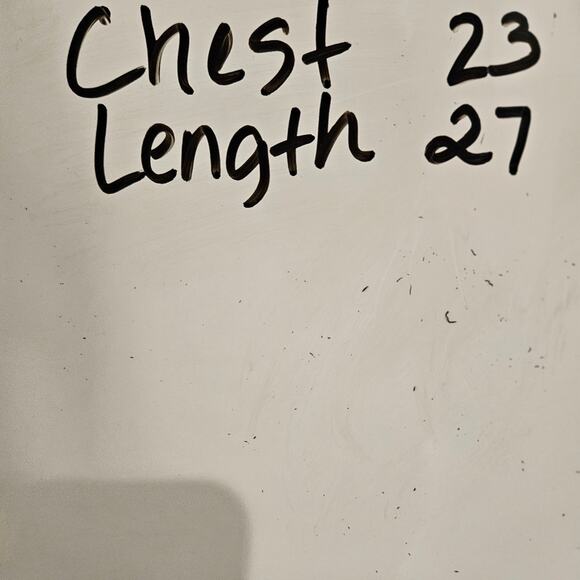 Chest 23
Length 27